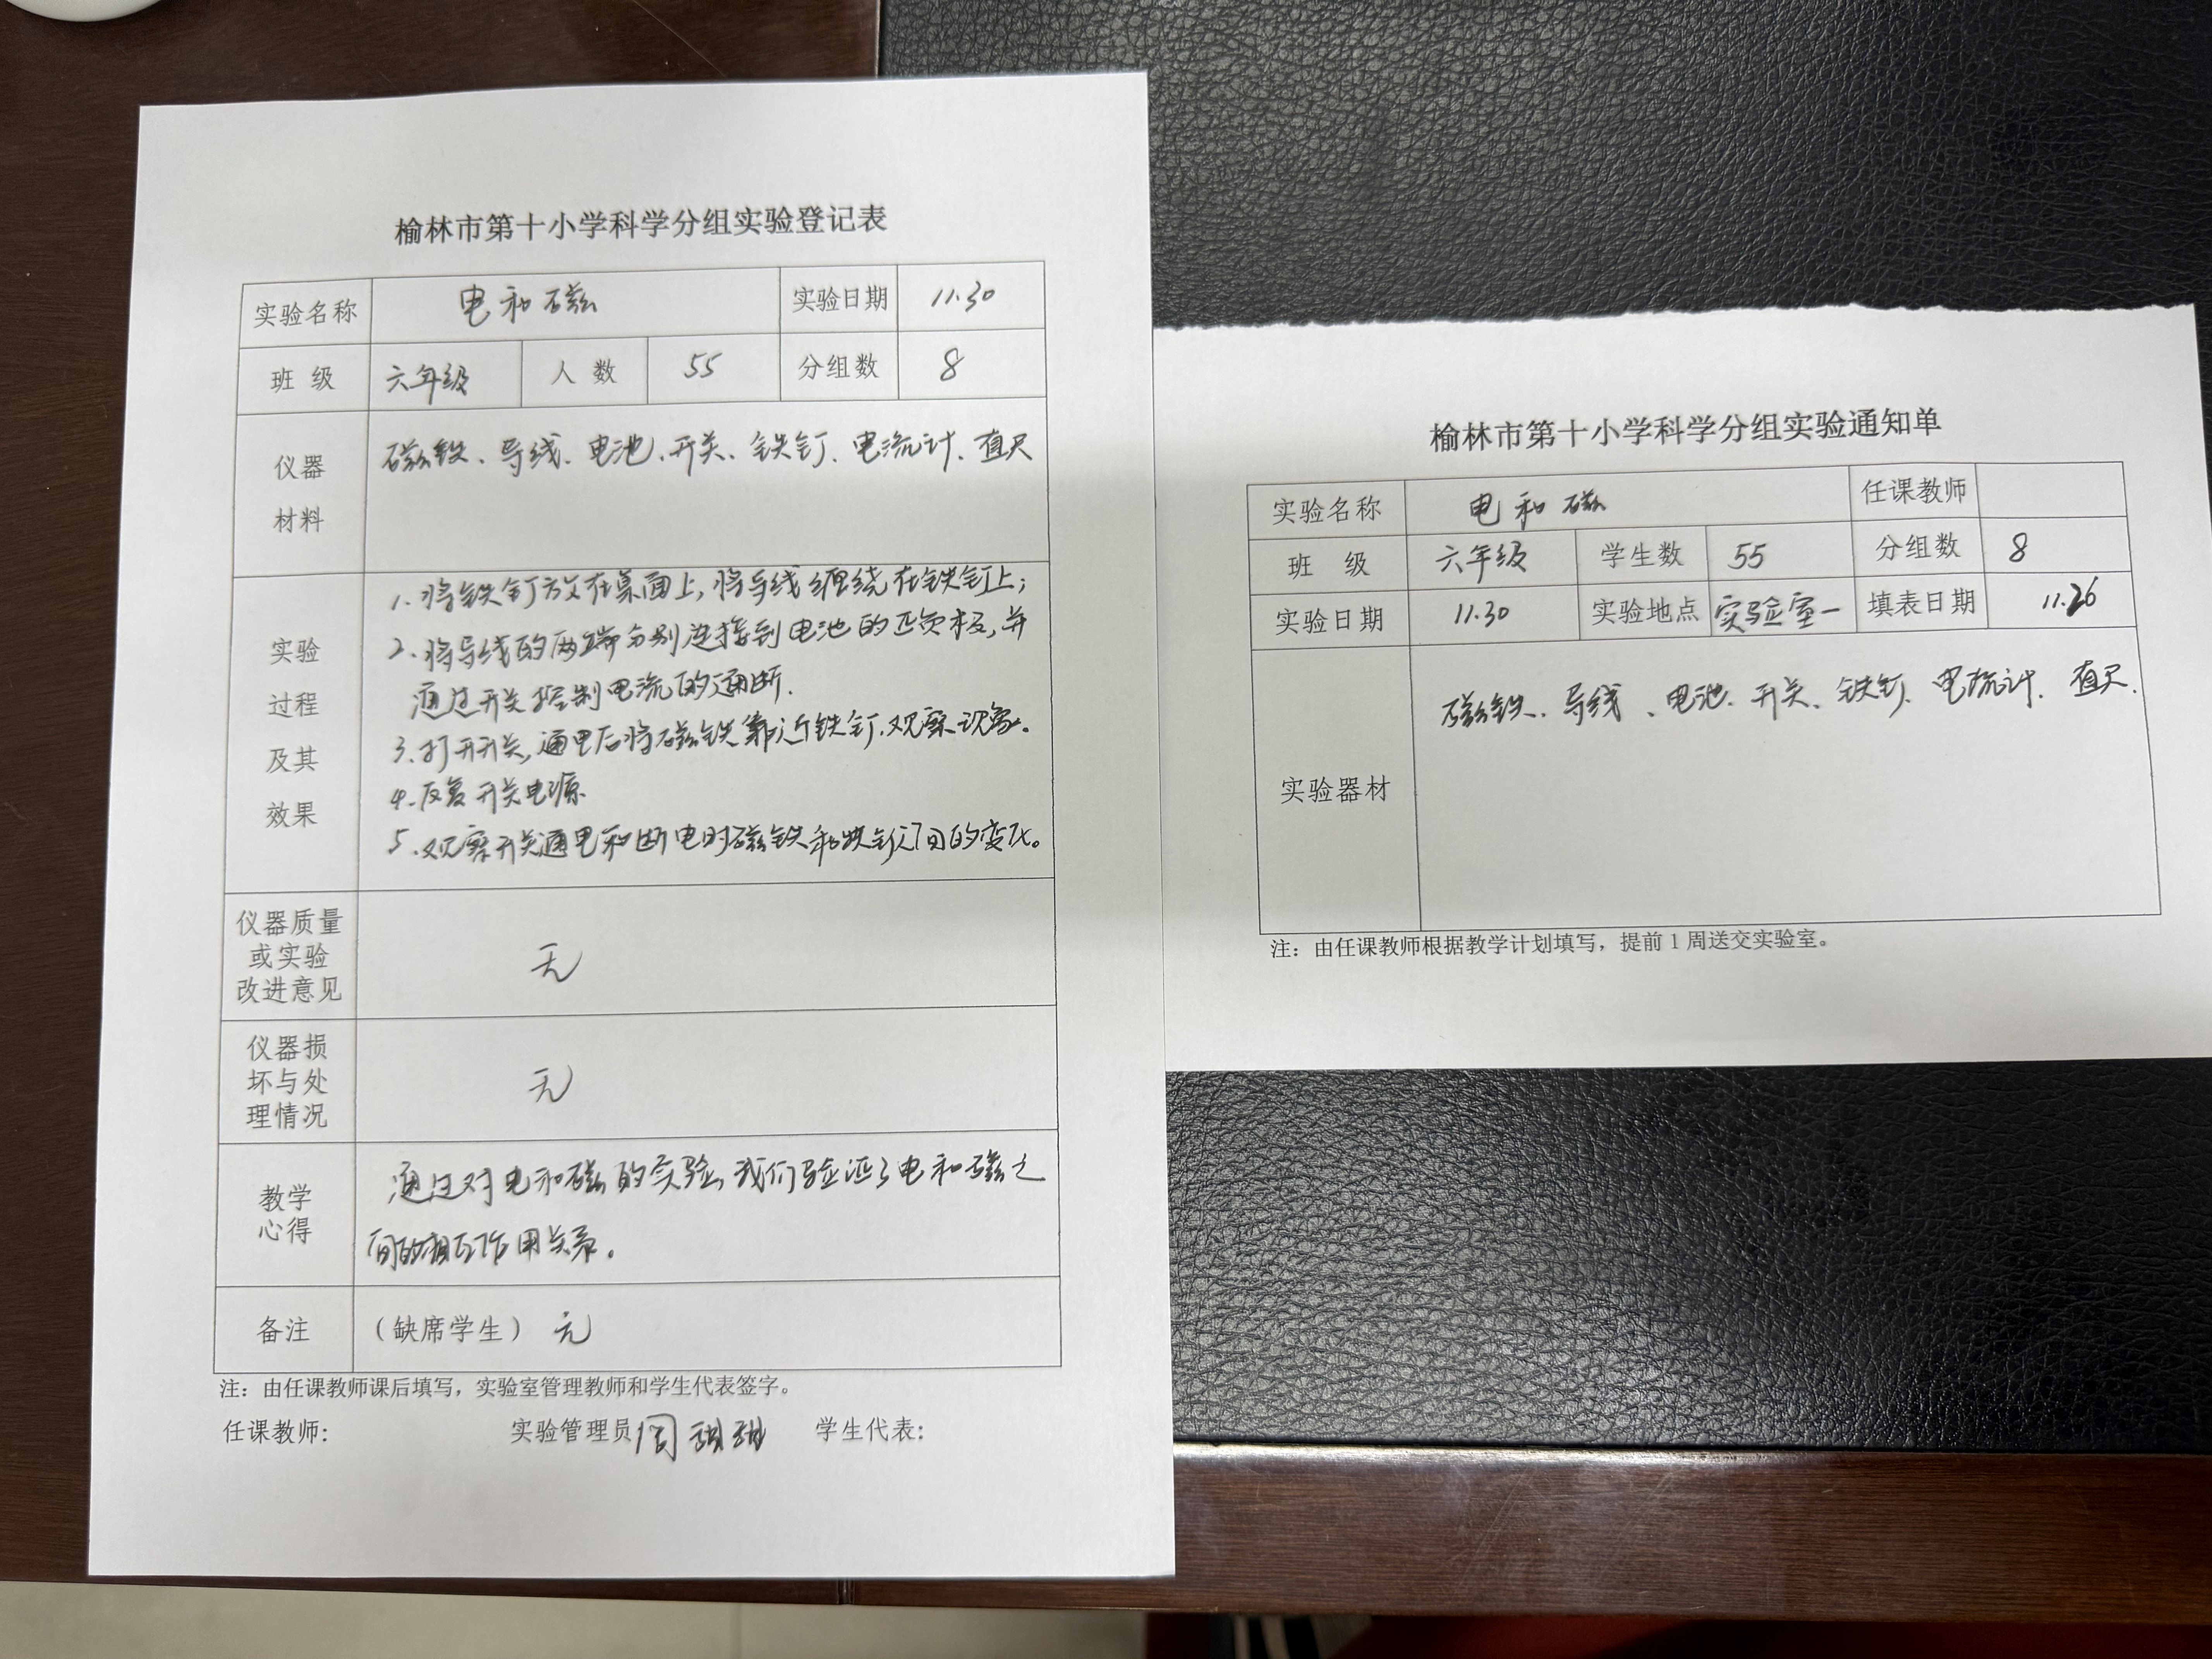 榆林市第十小学科学分组实验登记表
实验名称 电和磁 实验日期 11.30
班 级 六年级 人 数 55 分组数 8
仪器
材料
磁铁、导线、电池、开关、铁钉、电流计、直尺
实验
过程
及其
效果
1.将铁钉放在桌面上,将导线缠绕在铁钉上;
2.将导线的两端分别连接到电池的正负极,并
通过开关控制电流的通断.
3.打开开关,通电后将磁铁靠近铁钉.观察现象。
4.反复开关电源
5.观察开关通电和断电时磁铁和铁钉间的变化。
仪器质量
或实验
改进意见
无
仪器损
坏与处
理情况
无
教学
心得
通过对电和磁的实验,我们验证了电和磁之
间的相互作用关系。
备注 (缺席学生) 无
注：由任课教师课后填写，实验室管理教师和学生代表签字。
任课教师： 实验管理员 周甜甜 学生代表：
榆林市第十小学科学分组实验通知单
实验名称 电和磁 任课教师
班 级 六年级 学生数 55 分组数 8
实验日期 11.30 实验地点 实验室一 填表日期 11.26
实验器材
磁铁、导线、电池.开关、铁钉、电流计、直尺.
注：由任课教师根据教学计划填写，提前 1 周送交实验室。